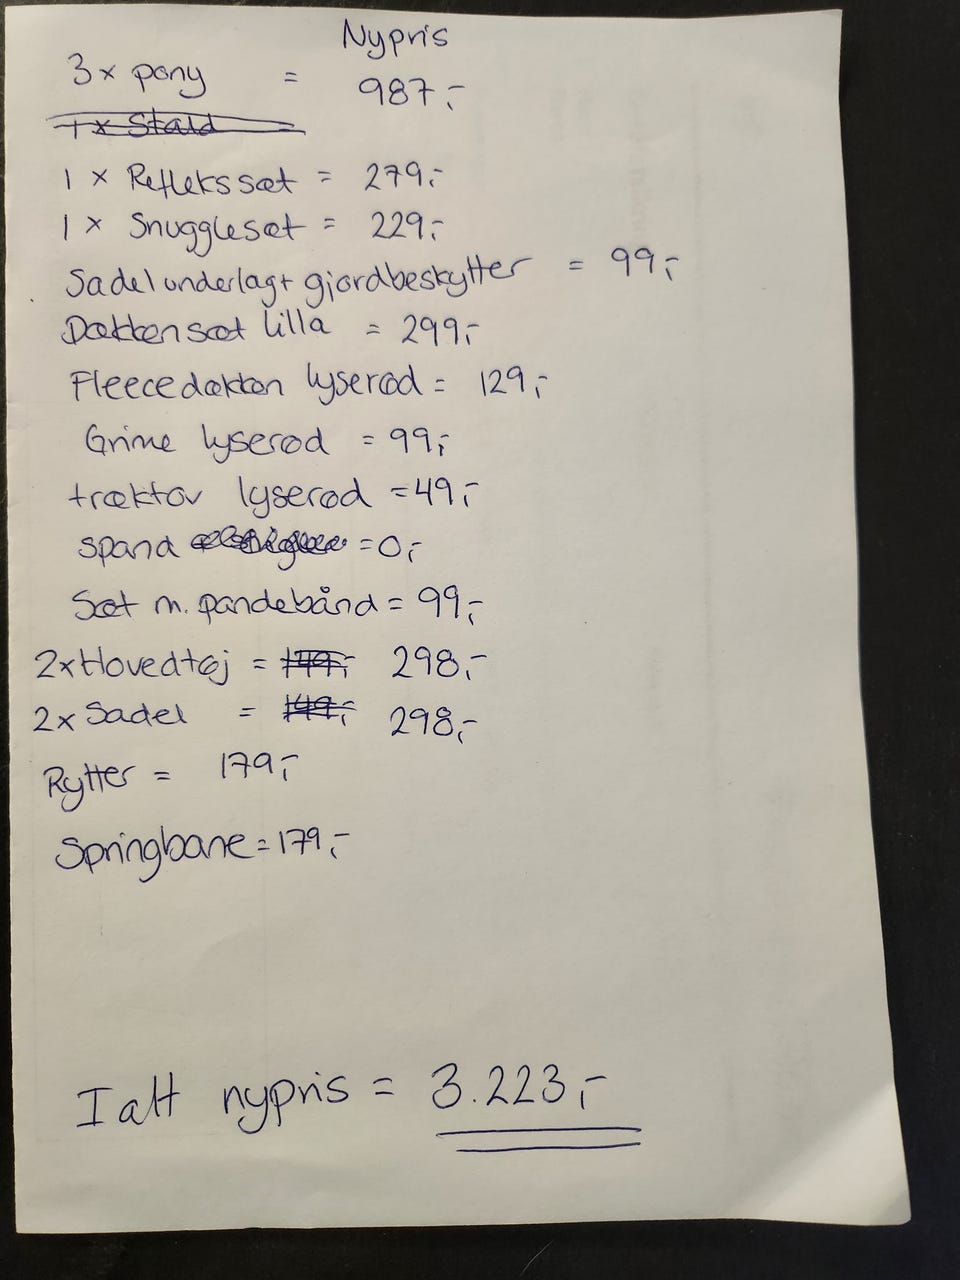 Nypris
3x pony = 987,-
1x Stald
1 x Reflekssæt = 279,-
1 x Snugglesæt = 229,-
Sadelunderlagt gjordbeskytter = 99,-
Dækkensæt lilla = 299,-
Fleecedækken lyserød = 129,-
Grime lyserød = 99,-
træktov lyserød = 49,-
spand = 0,-
Sæt m. pandebånd = 99,-
2x Hovedtøj = 149,- 298,-
2x Sadel = 149,- 298,-
Rytter = 179,-
Springbane = 179,-
I alt nypris = 3.223,-